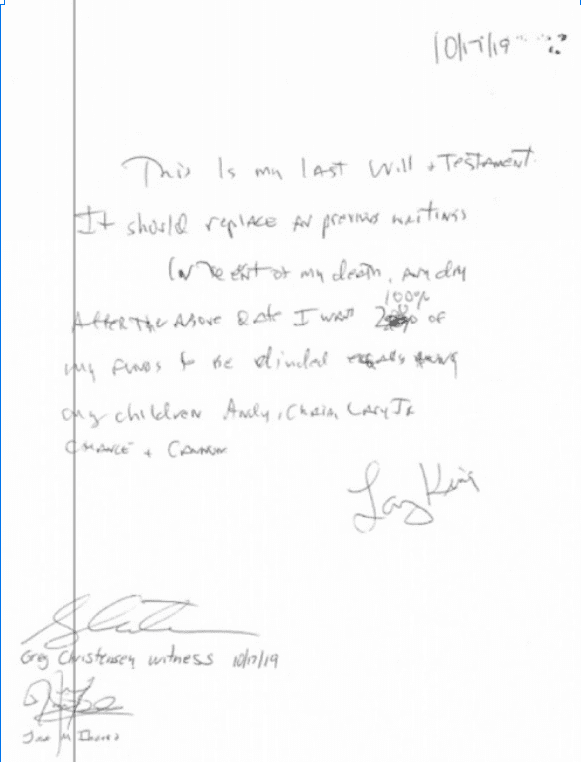 10/17/19
This Is my last Will + Testament.
It should replace all previous writings
In the event of my death, any day
After the Above date I want 100% of
my funds to be divided equally among
my children Andy, Chaia, Larry Jr
Chance + Cannon
Larry King
Greg Christensen witness 10/17/19